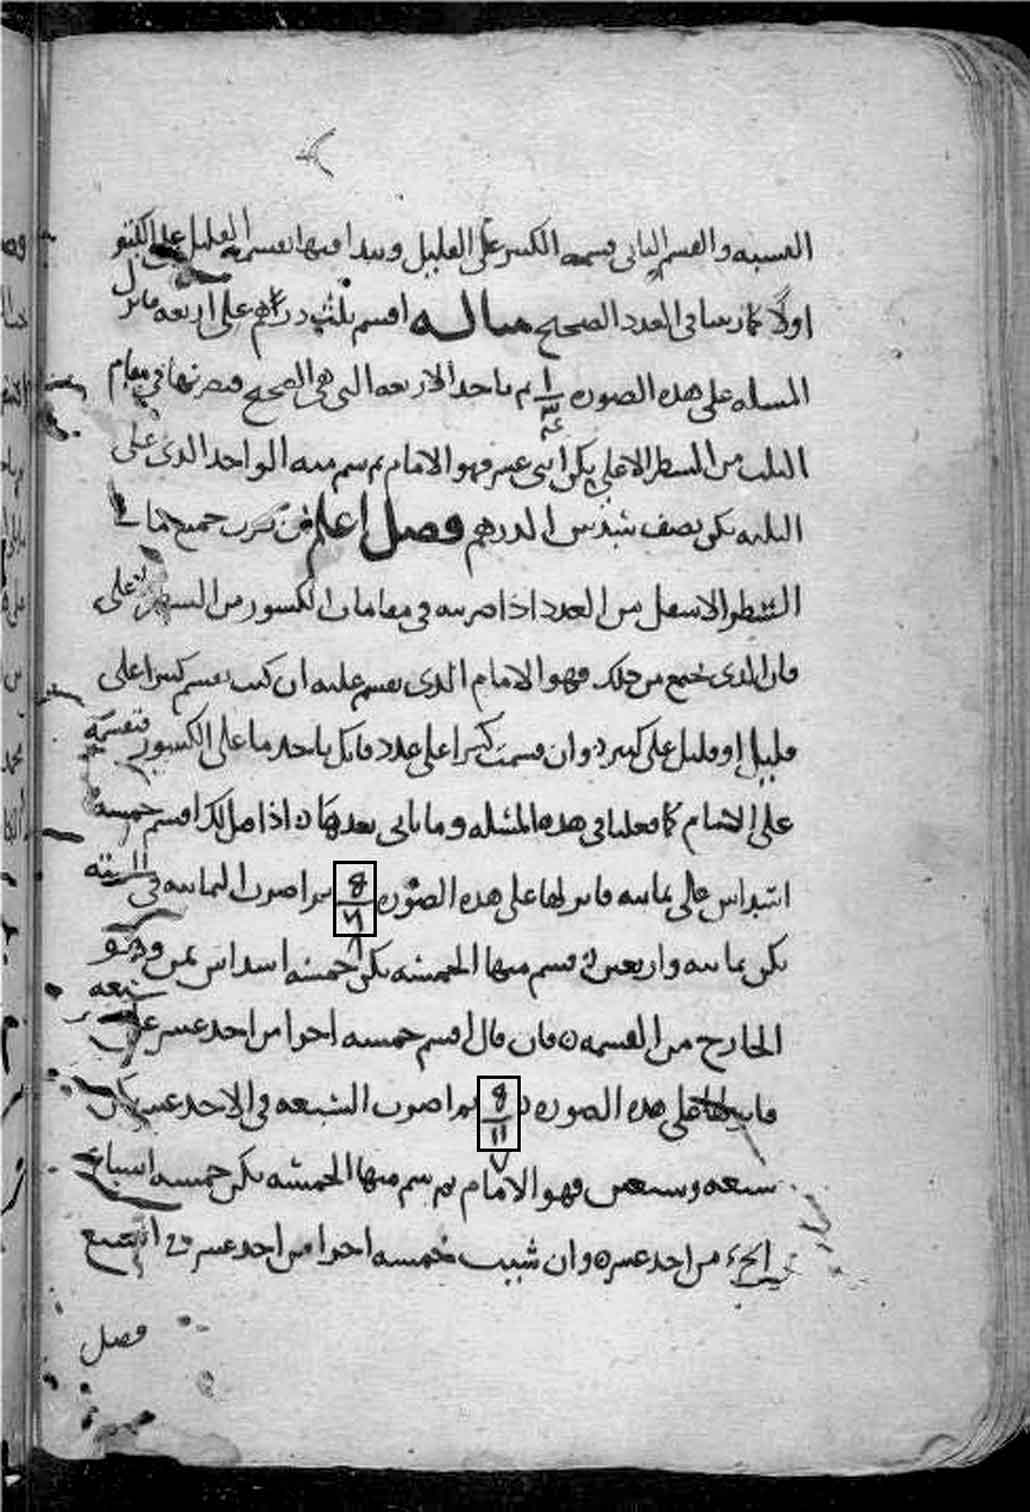 القسمه والقسم الثانى قسمه الكسر على القليل ونبدا فيها بقسمه القليل على الكثير
اولا كما رسمنا فى العدد الصحيح مساله اقسم ثلث درهم على اربعه فانزل
المسله على هذه الصوره ١/٣ ٤ ثم تاخد الاربعه التى هى الصحيح فتضربها فى مقام
الثلث من السطر الاعلى يكن اثنى عشر فهو الامام ثم سم منه الواحد الذى على
الثلثه يكن نصف سدس الدرهم فصل اعلم جميع ما فى
الشطر الاسفل من العدد اذا ضربته فى مقامات الكسور من السطر الاعلى
فان الذى تجمع من ذلك فهو الامام الذى تقسم عليه ان كنت تقسم كسرا على
قليل او قليل على كثير وان قسمت كسرا على عدد فانك تاخد ما على الكسور فتقسمه
على الامام كما فعلنا فى هذه المسئله وما ياتى بعدها اذا قيل لك اقسم خمسه
اسداس على ثمانيه فانزلها على هذه الصوره ٥/٦ ٨ ثم اضرب الثمانيه فى السته
يكن ثمانيه واربعين قسم منها الخمسه يكن خمسه اسداس ثمن وهو
الخارج من القسمه فان قال اقسم خمسه اجزا من احد عشر على سبعه
فانزلها على هذه الصوره ٥/١١ ٧ ثم اضرب السبعه فى الاحد عشر يكن
سبعه وسبعين فهو الامام ثم سم منها الخمسه يكن خمسه اسباع
الجزء من احد عشر وان شيت خمسه اجزا من احد عشر فى السبع
فصل